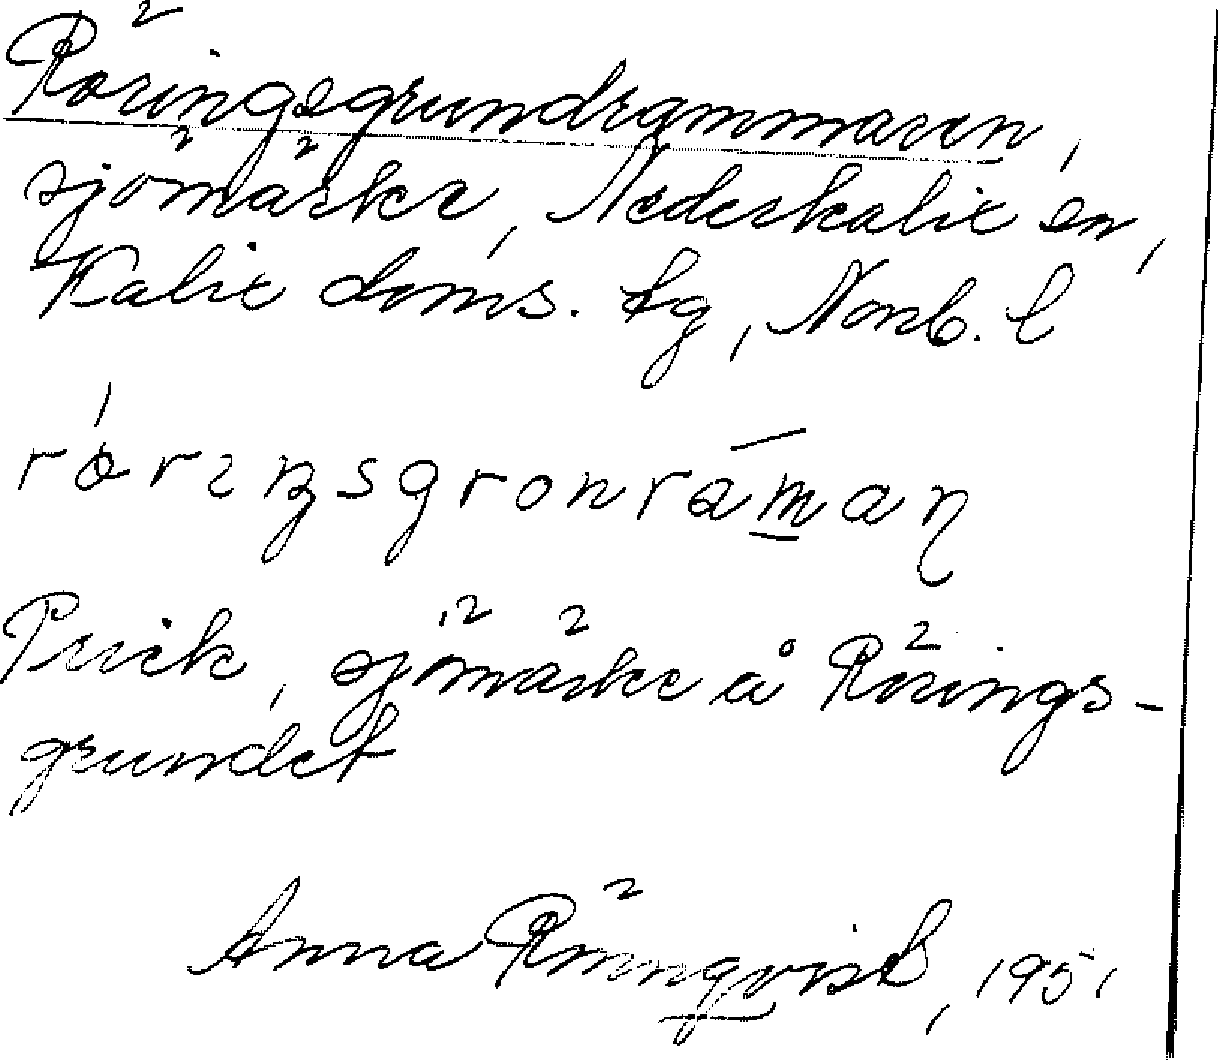 Röringsgrundrammaren,
sjömärke, Nederkalix sn,
Kalix doms. lg, Norrb. l
Prick, sjömärke å Rörings-
grundet
Anna Rönnqvist, 1951